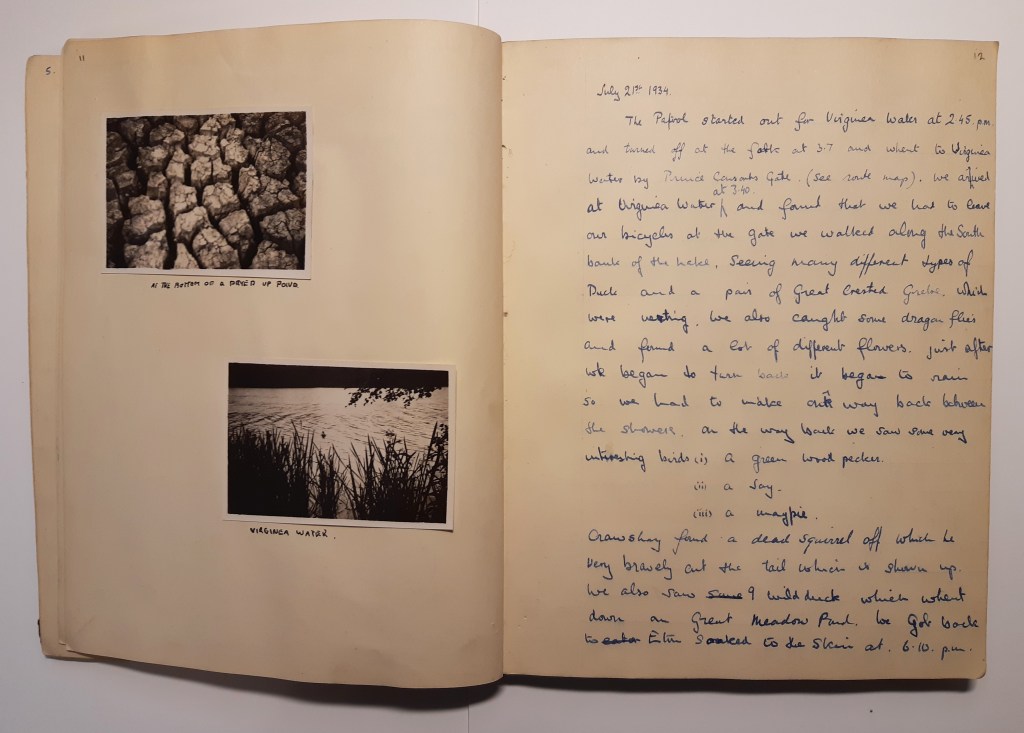 5.
11
AT THE BOTTOM OF A DRYED UP POND.
VIRGINEA WATER.
12
July 21st 1934.
The Patrol started out for Virginea Water at 2.45. p.m.
and turned off at the at 3.7 and whent to Virginea
Water by Prince Consorts Gate. (See route map). We arrived
at Virginea Water at 3.40. and found that we had to leave
our bicycles at the gate we walked along the South
bank of the Lake. Seeing many different types of
Duck and a pair of Great Crested Grebe. Which
were nesting. We also caught some dragon flies
and found a lot of different flowers. just after
we began to turn back it began to rain
so we had to make our way back between
the showers. On the way back we saw some very
interesting birds (i) a green wood pecker.
(ii) a Jay.
(iii) a magpie.
Crawshay found a dead squirrel off which he
very bravely cut the tail which is shown up.
We also saw some 9 wild duck which whent
down on Great Meadow Pond. We Got back
to Eton Soaked to the Skin at. 6.10. p.m.